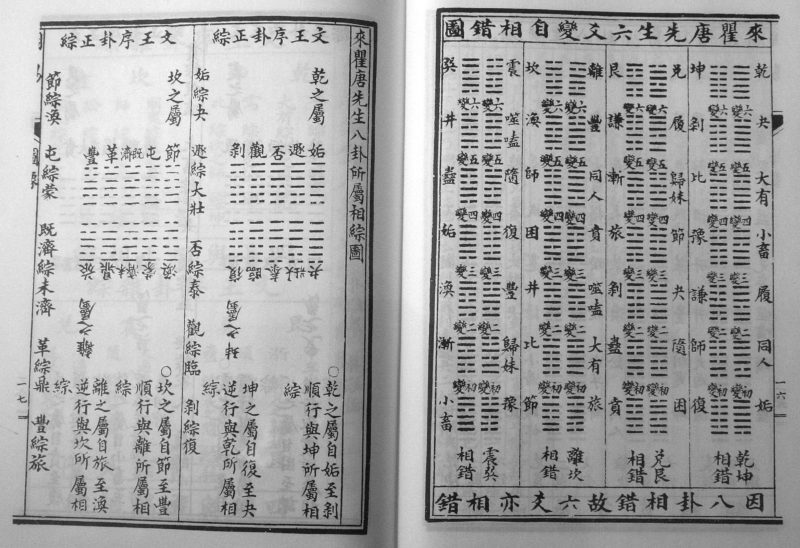 來瞿唐先生六爻變自相錯圖
乾 夬 大有 小畜 履 同人 姤
六變 五變 四變 三變 二變 初變
坤 剝 比 豫 謙 師 復
乾坤相錯
兌 履 歸妹 節 夬 隨 困
六變 五變 四變 三變 二變 初變
艮 謙 漸 旅 剝 蠱 賁
兌艮相錯
離 豐 同人 賁 噬嗑 大有 旅
六變 五變 四變 三變 二變 初變
坎 渙 師 困 井 比 節
離坎相錯
震 噬嗑 隨 復 豐 歸妹 豫
六變 五變 四變 三變 二變 初變
巽 井 蠱 姤 渙 漸 小畜
震巽相錯
因八卦相錯故六爻亦相錯
一六
來瞿唐先生八卦所屬相綜圖
文王序卦正綜
乾之屬
姤 遯 否 觀 剝
夬 大壯 泰 臨 復
坤之屬
姤綜夬 遯綜大壯 否綜泰 觀綜臨 剝綜復
○乾之屬自姤至剝
順行與坤所屬相
綜
坤之屬自復至夬
逆行與乾所屬相
綜
文王序卦正綜
坎之屬
節 屯 既濟 革 豐
渙 蒙 未濟 鼎 旅
離之屬
節綜渙 屯綜蒙 既濟綜未濟 革綜鼎 豐綜旅
○坎之屬自節至豐
順行與離所屬相
綜
離之屬自旅至渙
逆行與坎所屬相
綜
一七